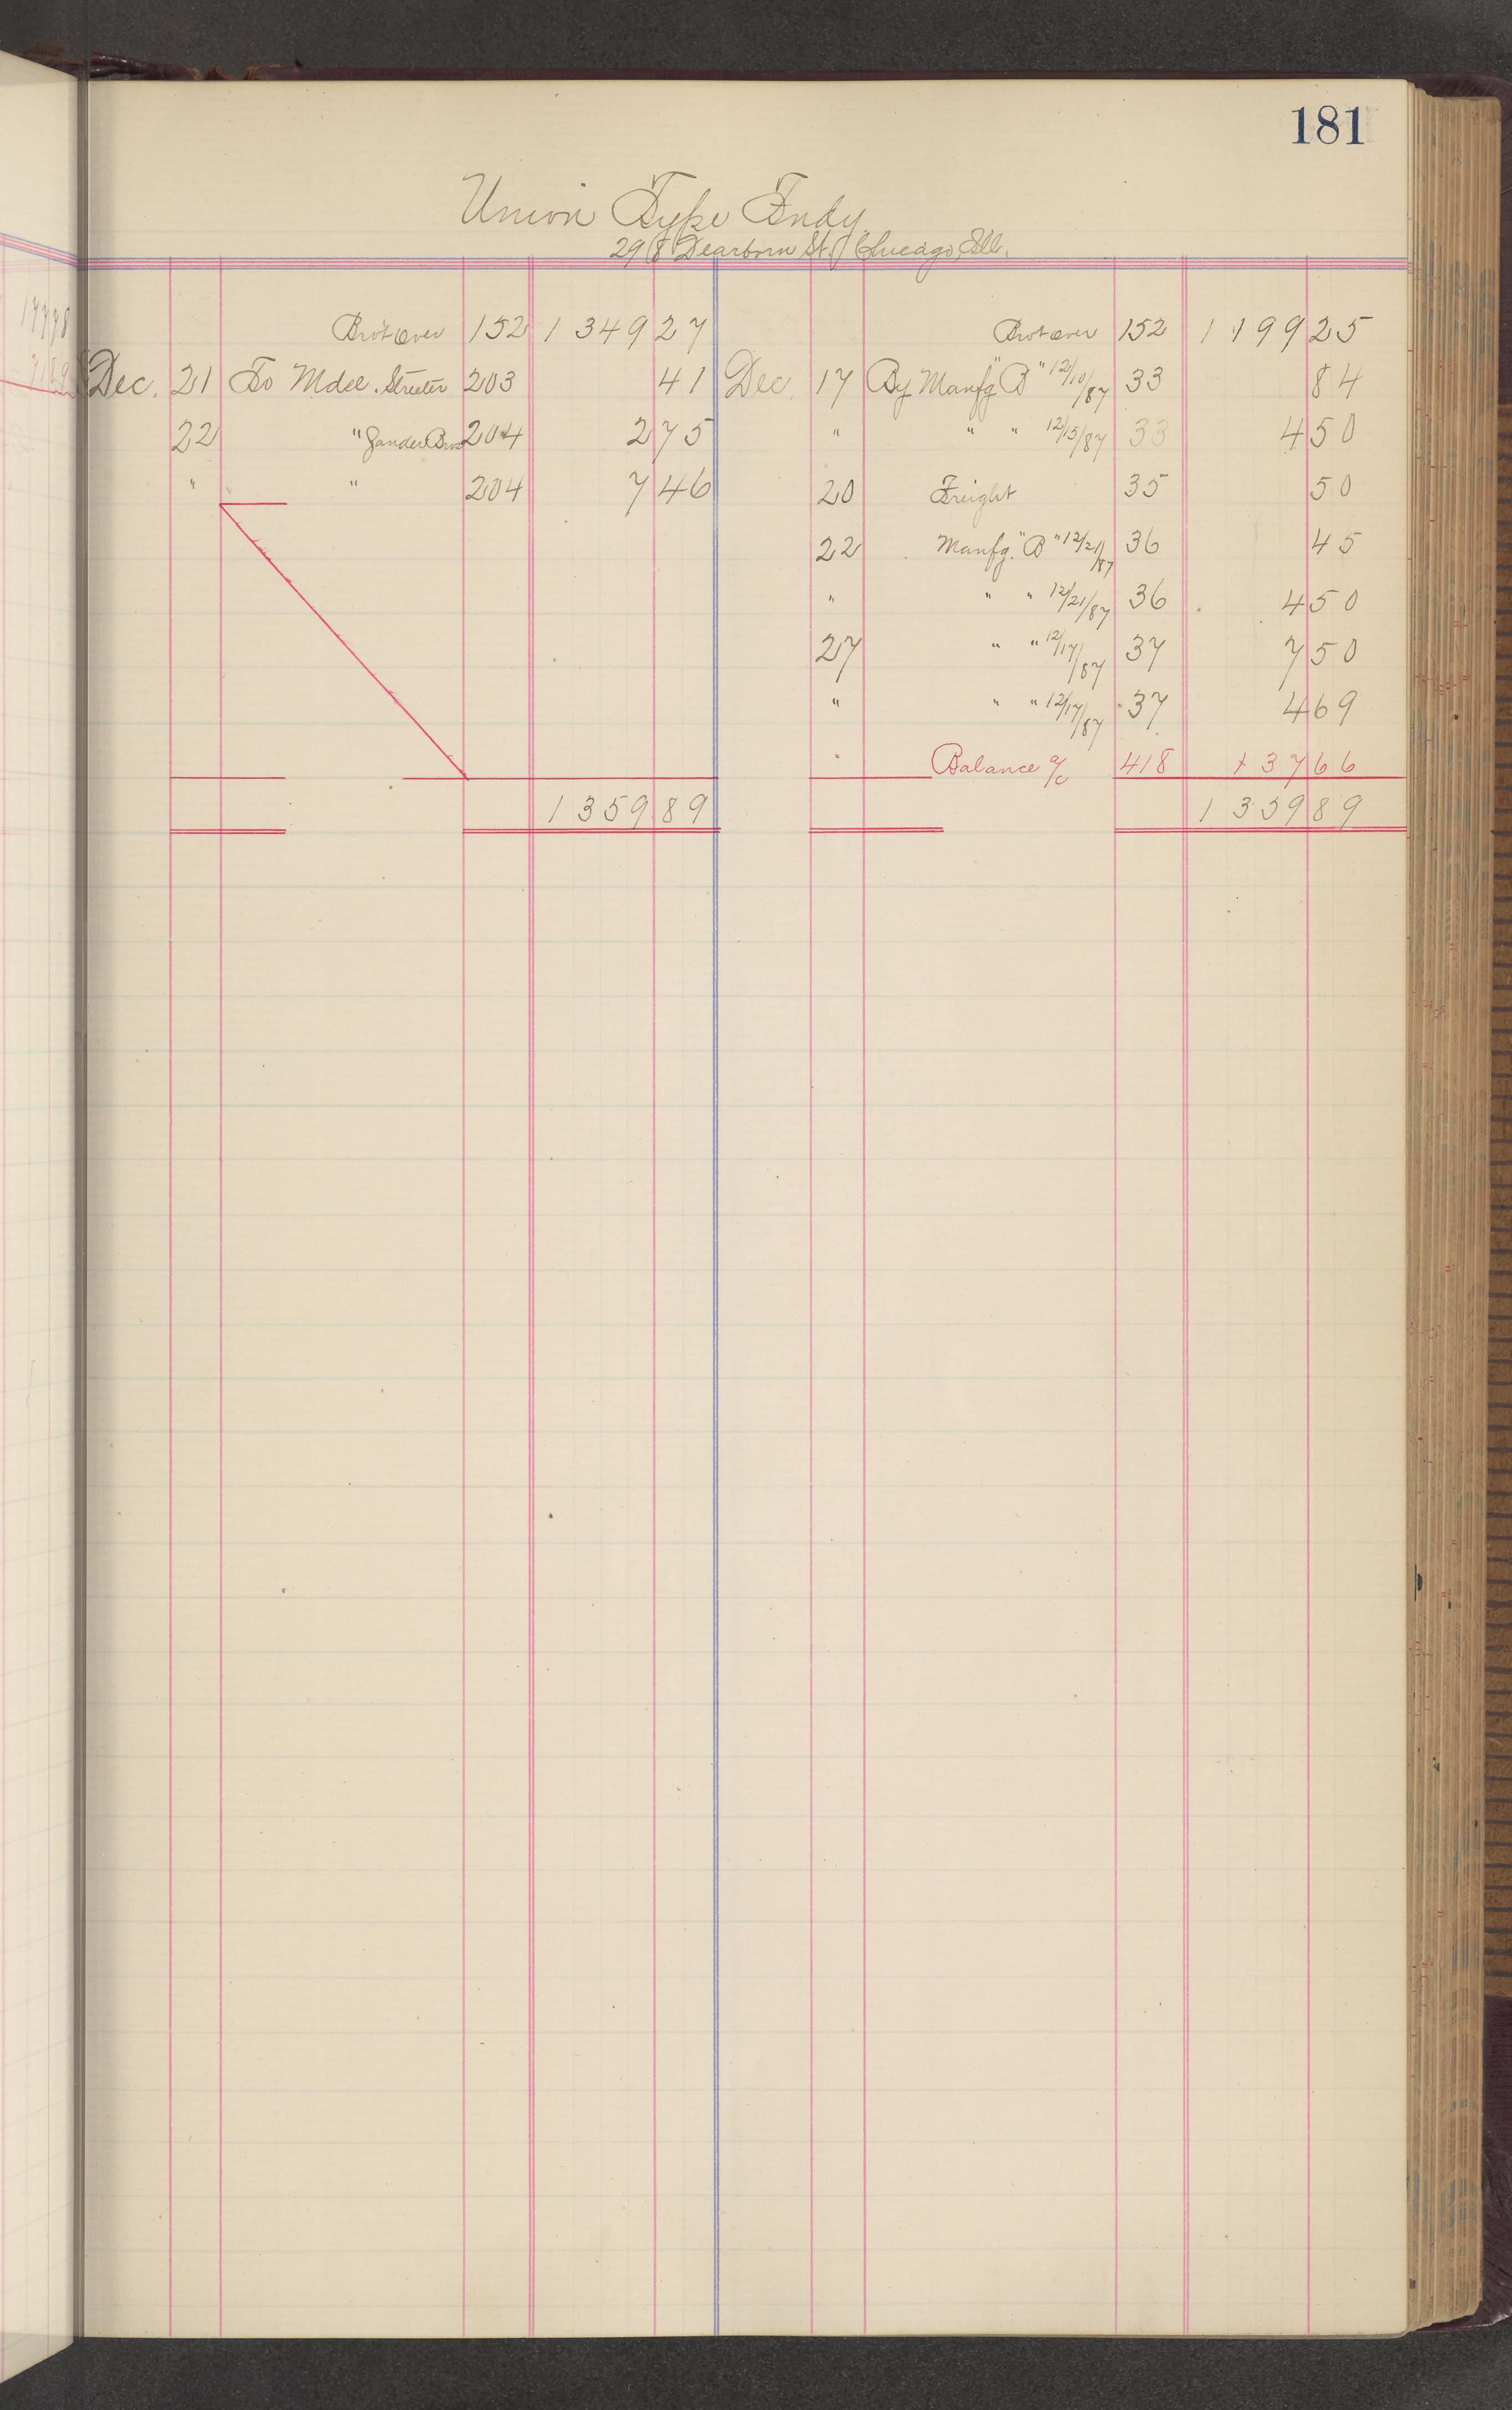 181
Union Type Fndy.
298 Dearborn St. Chicago, Ill.
Brot over 152 1 349 27 Brot over 152 1 199 25
Dec. 21 To Mdse. Streeter 203 41 Dec. 17 By Manfg "B" 12/10/87 33 84
22 " Zander Bros 204 2 75 " " " 12/15/87 33 4 50
" " 204 7 46 20 Freight 35 50
22 Manfg. "B" 12/21/87 36 45
" " " 12/21/87 36 4 50
27 " " 12/17/87 37 7 50
" " " 12/17/87 37 4 69
" Balance a/c 418 137 66
1 359 89 1 359 89